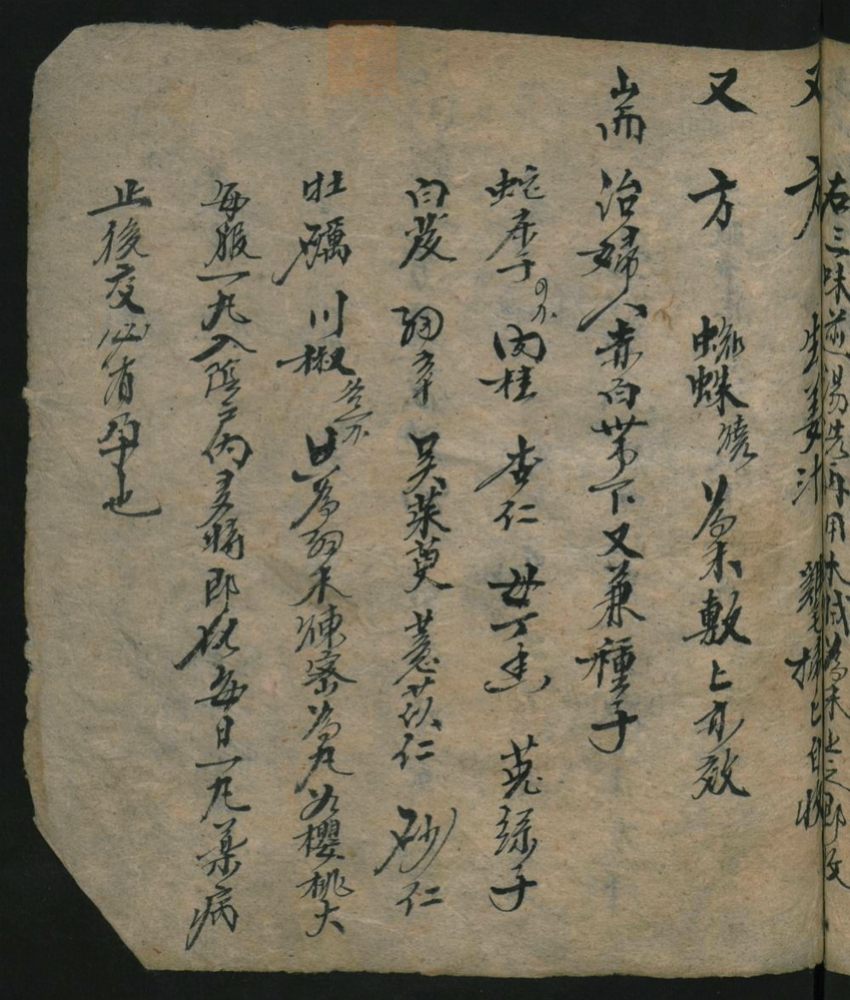 右三味煎湯洗再用
又方 生姜汁
又方 蜘蛛燒為末敷上亦效
耑治婦人赤白帶下又兼種子
蛇床子 肉桂 杏仁 母丁香 菟絲子
白芨 細辛 吳茱萸 薏苡仁 砂仁
牡礪 川椒 共為細末煉蜜為丸如櫻桃大
每服一丸入陰戶內 即化每日一丸藥病
止後交必有孕也